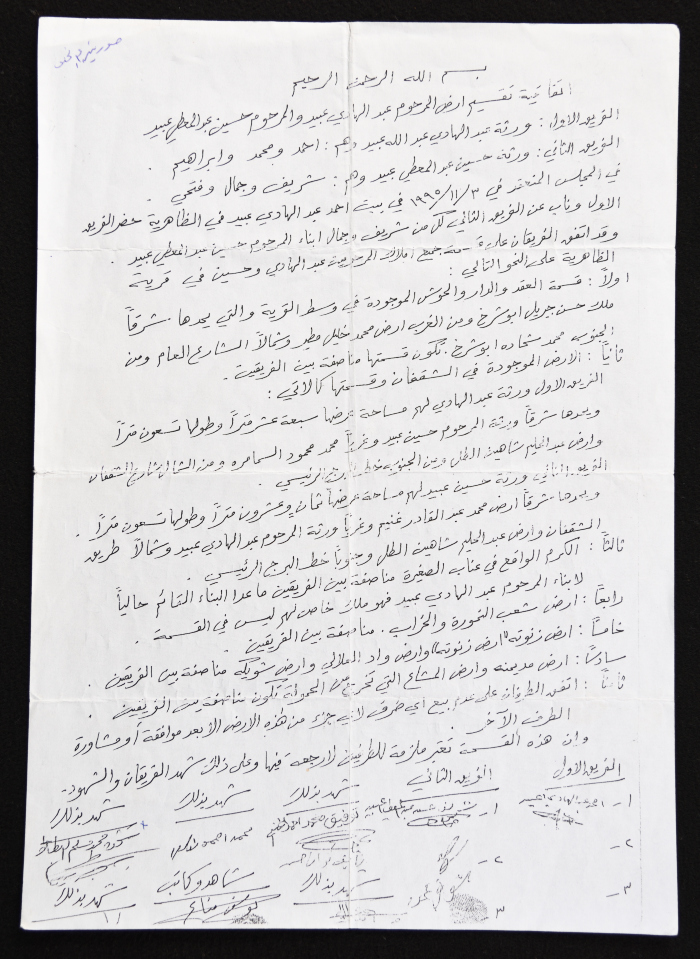 بسم الله الرحمن الرحيم
اتفاقية تقسيم ارض المرحوم عبد الهادي عبيد والمرحوم حسين عبد المعطي عبيد
الفريق الاول : ورثة عبد الهادي عبد الله عبيد وهم : احمد ومحمد وابراهيم .
الفريق الثاني : ورثة حسين عبد المعطي عبيد وهم : شريف وجمال وفتحي .
في المجلس المنعقد في ٣/١١/١٩٩٥ في بيت احمد عبد الهادي عبيد في الظاهرية حضر الفريق
الاول وناب عن الفريق الثاني كل من شريف وجمال ابناء المرحوم حسين عبد المعطي عبيد .
وقد اتفق الفريقان على قسمة جميع املاك المرحومين عبد الهادي وحسين في قرية
الظاهرية على النحو التالي :
اولاً : قسمة العقد والدار والحوش الموجودة في وسط القرية والتي يحدها شرقاً
ملك حسن جبريل ابو شرخ ومن الغرب ارض محمد خليل مطير وشمالاً الشارع العام ومن
الجنوب محمد شحاده ابو شرخ . تكون قسمتها مناصفة بين الفريقين .
ثانياً : الارض الموجودة في الشقفان وقسمتها كالاتي :
الفريق الاول ورثة عبد الهادي لهم مساحة عرضها سبعة عشر متراً وطولها تسعون متراً
ويحدها شرقاً ورثة المرحوم حسين عبيد وغرباً محمد محمود السمامره ومن الشمال شارع الشقفان
وارض عبد الحليم شاهين الطل ومن الجنوب خط البرج الرئيسي .
الفريق الثاني ورثة حسين عبيد لهم مساحة عرضها ثمان وعشرون متراً وطولها تسعون متراً .
ويحدها شرقاً ارض محمد عبد القادر غنيم وغرباً ورثة المرحوم عبد الهادي عبيد وشمالاً طريق
الشقفان وارض عبد الحليم شاهين الطل وجنوباً خط البرج الرئيسي .
ثالثاً : الكرم الواقع في عناب الصغيرة مناصفة بين الفريقين ما عدا البناء القائم حالياً
لابناء المرحوم عبد الهادي عبيد فهو ملك خاص لهم ليس في القسمة .
رابعاً : ارض شعب النمورة والخراب . مناصفة بين الفريقين
خامساً : ارض زنوته "ارض زنوته" وارض واد العلالي وارض شويكه مناصفة بين الفريقين .
سادساً : ارض مديمنه وارض المشاع التي تخرج من الحمولة تكون مناصفة بين الفريقين .
ثامناً : اتفق الطرفان على عدم بيع اي طرف لاي جزء من هذه الارض الا بعد موافقة او مشاورة
الطرف الآخر .
وان هذه القسمة تعتبر ملزمة للطرفين لا رجعه فيها وعلى ذلك شهد الفريقان والشهود .
الفريق الاول الفريق الثاني شهد بذلك شهد بذلك شهد بذلك
١ - احمد عبد الهادي عبيد ١ - شريف حسين عبد المعطي عبيد
٢ - ٢ -
شاهد وكاتب شهد بذلك شهد بذلك
٣ - ٣